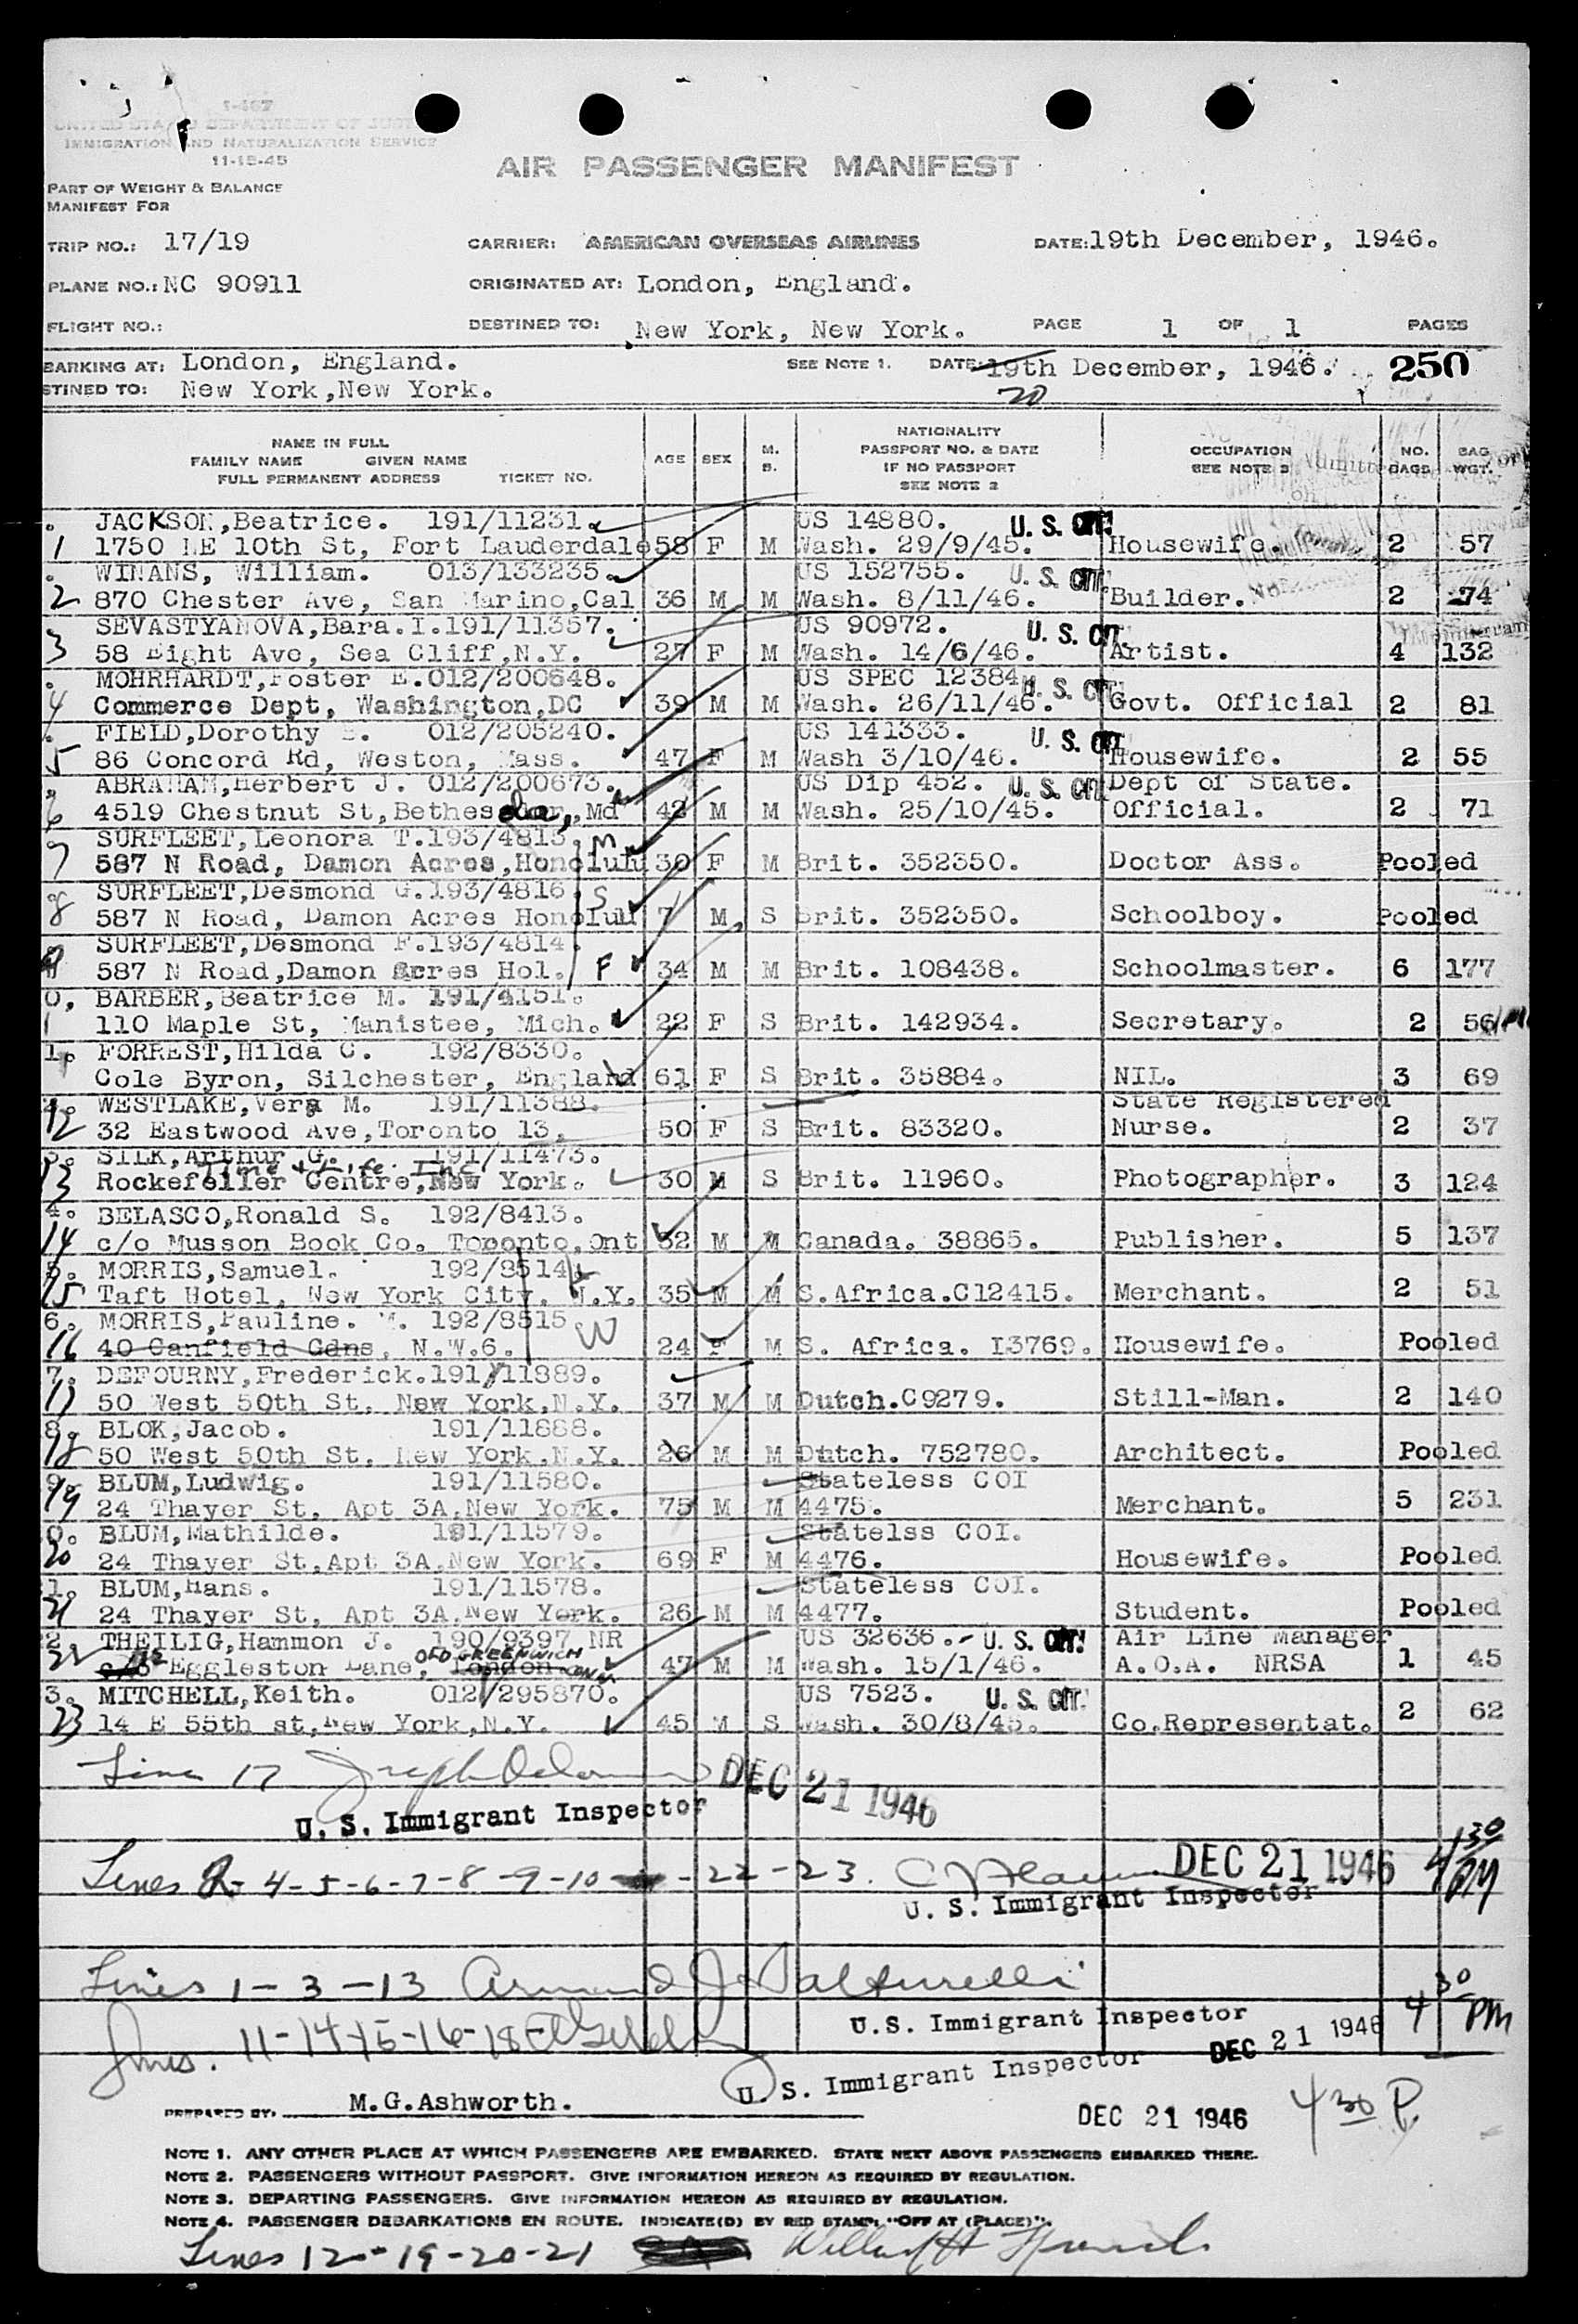 1-467
UNITED STATES DEPARTMENT OF JUSTICE
IMMIGRATION AND NATURALIZATION SERVICE
11-15-45
AIR PASSENGER MANIFEST
PART OF WEIGHT & BALANCE
MANIFEST FOR
TRIP NO.: 17/19 CARRIER: AMERICAN OVERSEAS AIRLINES DATE: 19th December, 1946.
PLANE NO.: NC 90911 ORIGINATED AT: London, England.
FLIGHT NO.: DESTINED TO: New York, New York. PAGE 1 OF 1 PAGES
BARKING AT: London, England. SEE NOTE 1. DATE: 19th December, 1946. 250
STINED TO: New York,New York. 20
NAME IN FULL
FAMILY NAME GIVEN NAME
FULL PERMANENT ADDRESS TICKET NO.
AGE SEX M. S.
NATIONALITY
PASSPORT NO. & DATE
IF NO PASSPORT
SEE NOTE 2
OCCUPATION
SEE NOTE 3
NO. BAGS BAG WGT.
JACKSON,Beatrice. 191/11231. US 14880. U. S. CIT.
1 1750 NE 10th St, Fort Lauderdale 58 F M Wash. 29/9/45. Housewife. 2 57
WINANS, William. 013/133235. US 152755. U. S. CIT.
2 870 Chester Ave, San Marino,Cal 36 M M Wash. 8/11/46. Builder. 2 74
SEVASTYANOVA,Bara.I.191/11357. US 90972. U. S. CIT.
3 58 Eight Ave, Sea Cliff,N.Y. 27 F M Wash. 14/6/46. Artist. 4 132
MOHRHARDT,Foster E.012/200648. US SPEC 12384. U. S. CIT.
4 Commerce Dept, Washington,DC 39 M M Wash. 26/11/46. Govt. Official 2 81
FIELD,Dorothy 012/205240. US 141333. U. S. CIT.
5 86 Concord Rd, Weston, Mass. 47 F M Wash 3/10/46. Housewife. 2 55
ABRAHAM,Herbert J. 012/200673. US Dip 452. U. S. CIT. Dept of State.
6 4519 Chestnut St,Bethesda,,Md 42 M M Wash. 25/10/45. Official. 2 71
SURFLEET,Leonora T.193/4813. M
7 587 N Road, Damon Acres,Honolulu 30 F M Brit. 352350. Doctor Ass. Pooled
SURFLEET,Desmond G.193/4816. S
8 587 N Road, Damon Acres Honolulu 7 M S Brit. 352350. Schoolboy. Pooled
SURFLEET,Desmond F.193/4814.
9 587 N Road,Damon Acres Hol. F 34 M M Brit. 108438. Schoolmaster. 6 177
0. BARBER,Beatrice M. 191/4151.
110 Maple St, Manistee, Mich. 22 F S Brit. 142934. Secretary. 2 56
1. FORREST,Hilda C. 192/8330.
Cole Byron, Silchester, England 61 F S Brit. 35884. NIL. 3 69
2. WESTLAKE,Vera M. 191/11388. State Registered
12 32 Eastwood Ave,Toronto 13. 50 F S Brit. 83320. Nurse. 2 37
3. SILK,Arthur G. 191/11473.
Time & Life Inc
13 Rockefeller Centre,New York. 30 M S Brit. 11960. Photographer. 3 124
4. BELASCO,Ronald S. 192/8413.
14 c/o Musson Book Co. Toronto,Ont 32 M M Canada. 38865. Publisher. 5 137
5. MORRIS,Samuel. 192/8514
15 Taft Hotel, New York City, N.Y. 35 M M S.Africa.C12415. Merchant. 2 51
6. MORRIS,Pauline. M. 192/8515 W
16 40 Canfield Gdns, N.W.6. 24 F M S. Africa. I3769. Housewife. Pooled
7. DEFOURNY,Frederick.191/11889.
17 50 West 50th St, New York,N.Y. 37 M M Dutch.C9279. Still-Man. 2 140
8. BLOK,Jacob. 191/11888.
18 50 West 50th St, New York,N.Y. 26 M M Dutch. 752780. Architect. Pooled
9. BLUM,Ludwig. 191/11580. Stateless COI
19 24 Thayer St, Apt 3A,New York. 75 M M 4475. Merchant. 5 231
0. BLUM,Mathilde. 191/11579. Statelss COI.
20 24 Thayer St,Apt 3A,New York. 69 F M 4476. Housewife. Pooled
1. BLUM,Hans. 191/11578. Stateless COI.
21 24 Thayer St, Apt 3A,New York. 26 M M 4477. Student. Pooled
2. THEILIG,Hammon J. 190/9397 NR US 32636. U. S. CIT. Air Line Manager
22 Eggleston Lane, London OLD GREENWICH CONN 47 M M Wash. 15/1/46. A.O.A. NRSA 1 45
3. MITCHELL,Keith. 012/295870. US 7523. U. S. CIT.
23 14 E 55th st,New York,N.Y. 45 M S Wash. 30/8/45. Co.Representat. 2 62
Line 17 DEC 21 1946
U. S. Immigrant Inspector
Lines 2-4-5-6-7-8-9-10 -22-23. DEC 21 1946 4 30 PM
U. S. Immigrant Inspector
Lines 1-3-13
U.S. Immigrant Inspector 4 30 PM
Lines. 11-14-15-16-18 DEC 21 1946
U. S. Immigrant Inspector
PREPARED BY: M.G.Ashworth. DEC 21 1946 4 30 P.
NOTE 1. ANY OTHER PLACE AT WHICH PASSENGERS ARE EMBARKED. STATE NEXT ABOVE PASSENGERS EMBARKED THERE.
NOTE 2. PASSENGERS WITHOUT PASSPORT. GIVE INFORMATION HEREON AS REQUIRED BY REGULATION.
NOTE 3. DEPARTING PASSENGERS. GIVE INFORMATION HEREON AS REQUIRED BY REGULATION.
NOTE 4. PASSENGER DEBARKATIONS EN ROUTE. INDICATE(D) BY RED STAMP: "OFF AT (PLACE)".
Lines 12-19-20-21